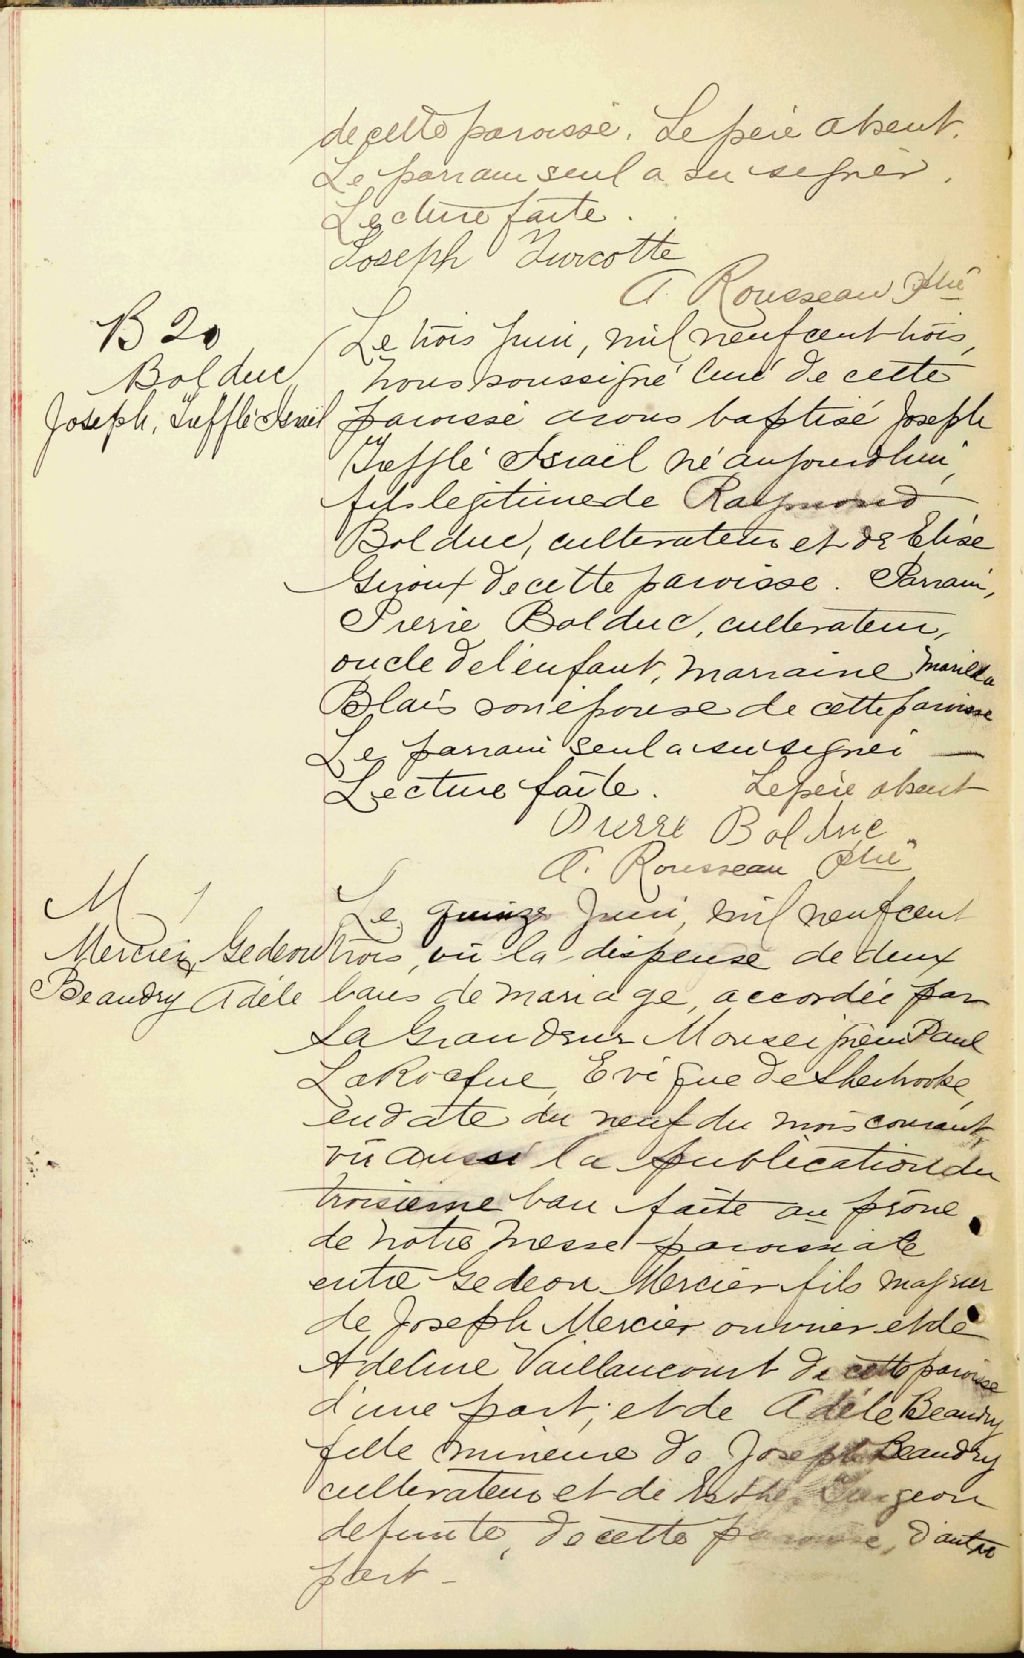 de cette paroisse. Le père absent.
Le parrain seul a su signer.
Lecture faite.
Joseph Turcotte
A. Rousseau Ptre
B 20
Bolduc
Joseph, Trefflé Israël
Le trois Juin, mil neuf cent trois,
nous soussigné curé de cette
paroisse avons baptisé Joseph
Trefflé Israël né aujourd'hui,
fils légitime de Raymond
Bolduc, cultivateur et de Elise
Giroux de cette paroisse. Parrain,
Pierre Bolduc, cultivateur,
oncle de l'enfant, marraine
Blais son épouse de cette paroisse
Le parrain seul a su signer —
Lecture faite. Le père absent
Pierre Bolduc
A. Rousseau Ptre
M 1
Mercier Gedeon
&
Beaudry Adèle
Le quinze Juin, mil neuf cent
trois, vu la dispense de deux
bans de mariage, accordée par
Sa Grandeur Monseigneur Paul
LaRocque, Evêque de Sherbrooke,
en date du neuf du mois courant,
vu aussi la publication du
troisième ban faite au prône
de notre messe paroissiale
entre Gedeon Mercier fils majeur
de Joseph Mercier ouvrier et de
Adeline Vaillancourt de cette paroisse
d'une part, et de Adèle Beaudry
fille mineure de Joseph Beaudry
cultivateur et de
defunte, de cette paroisse, d'autre
part —